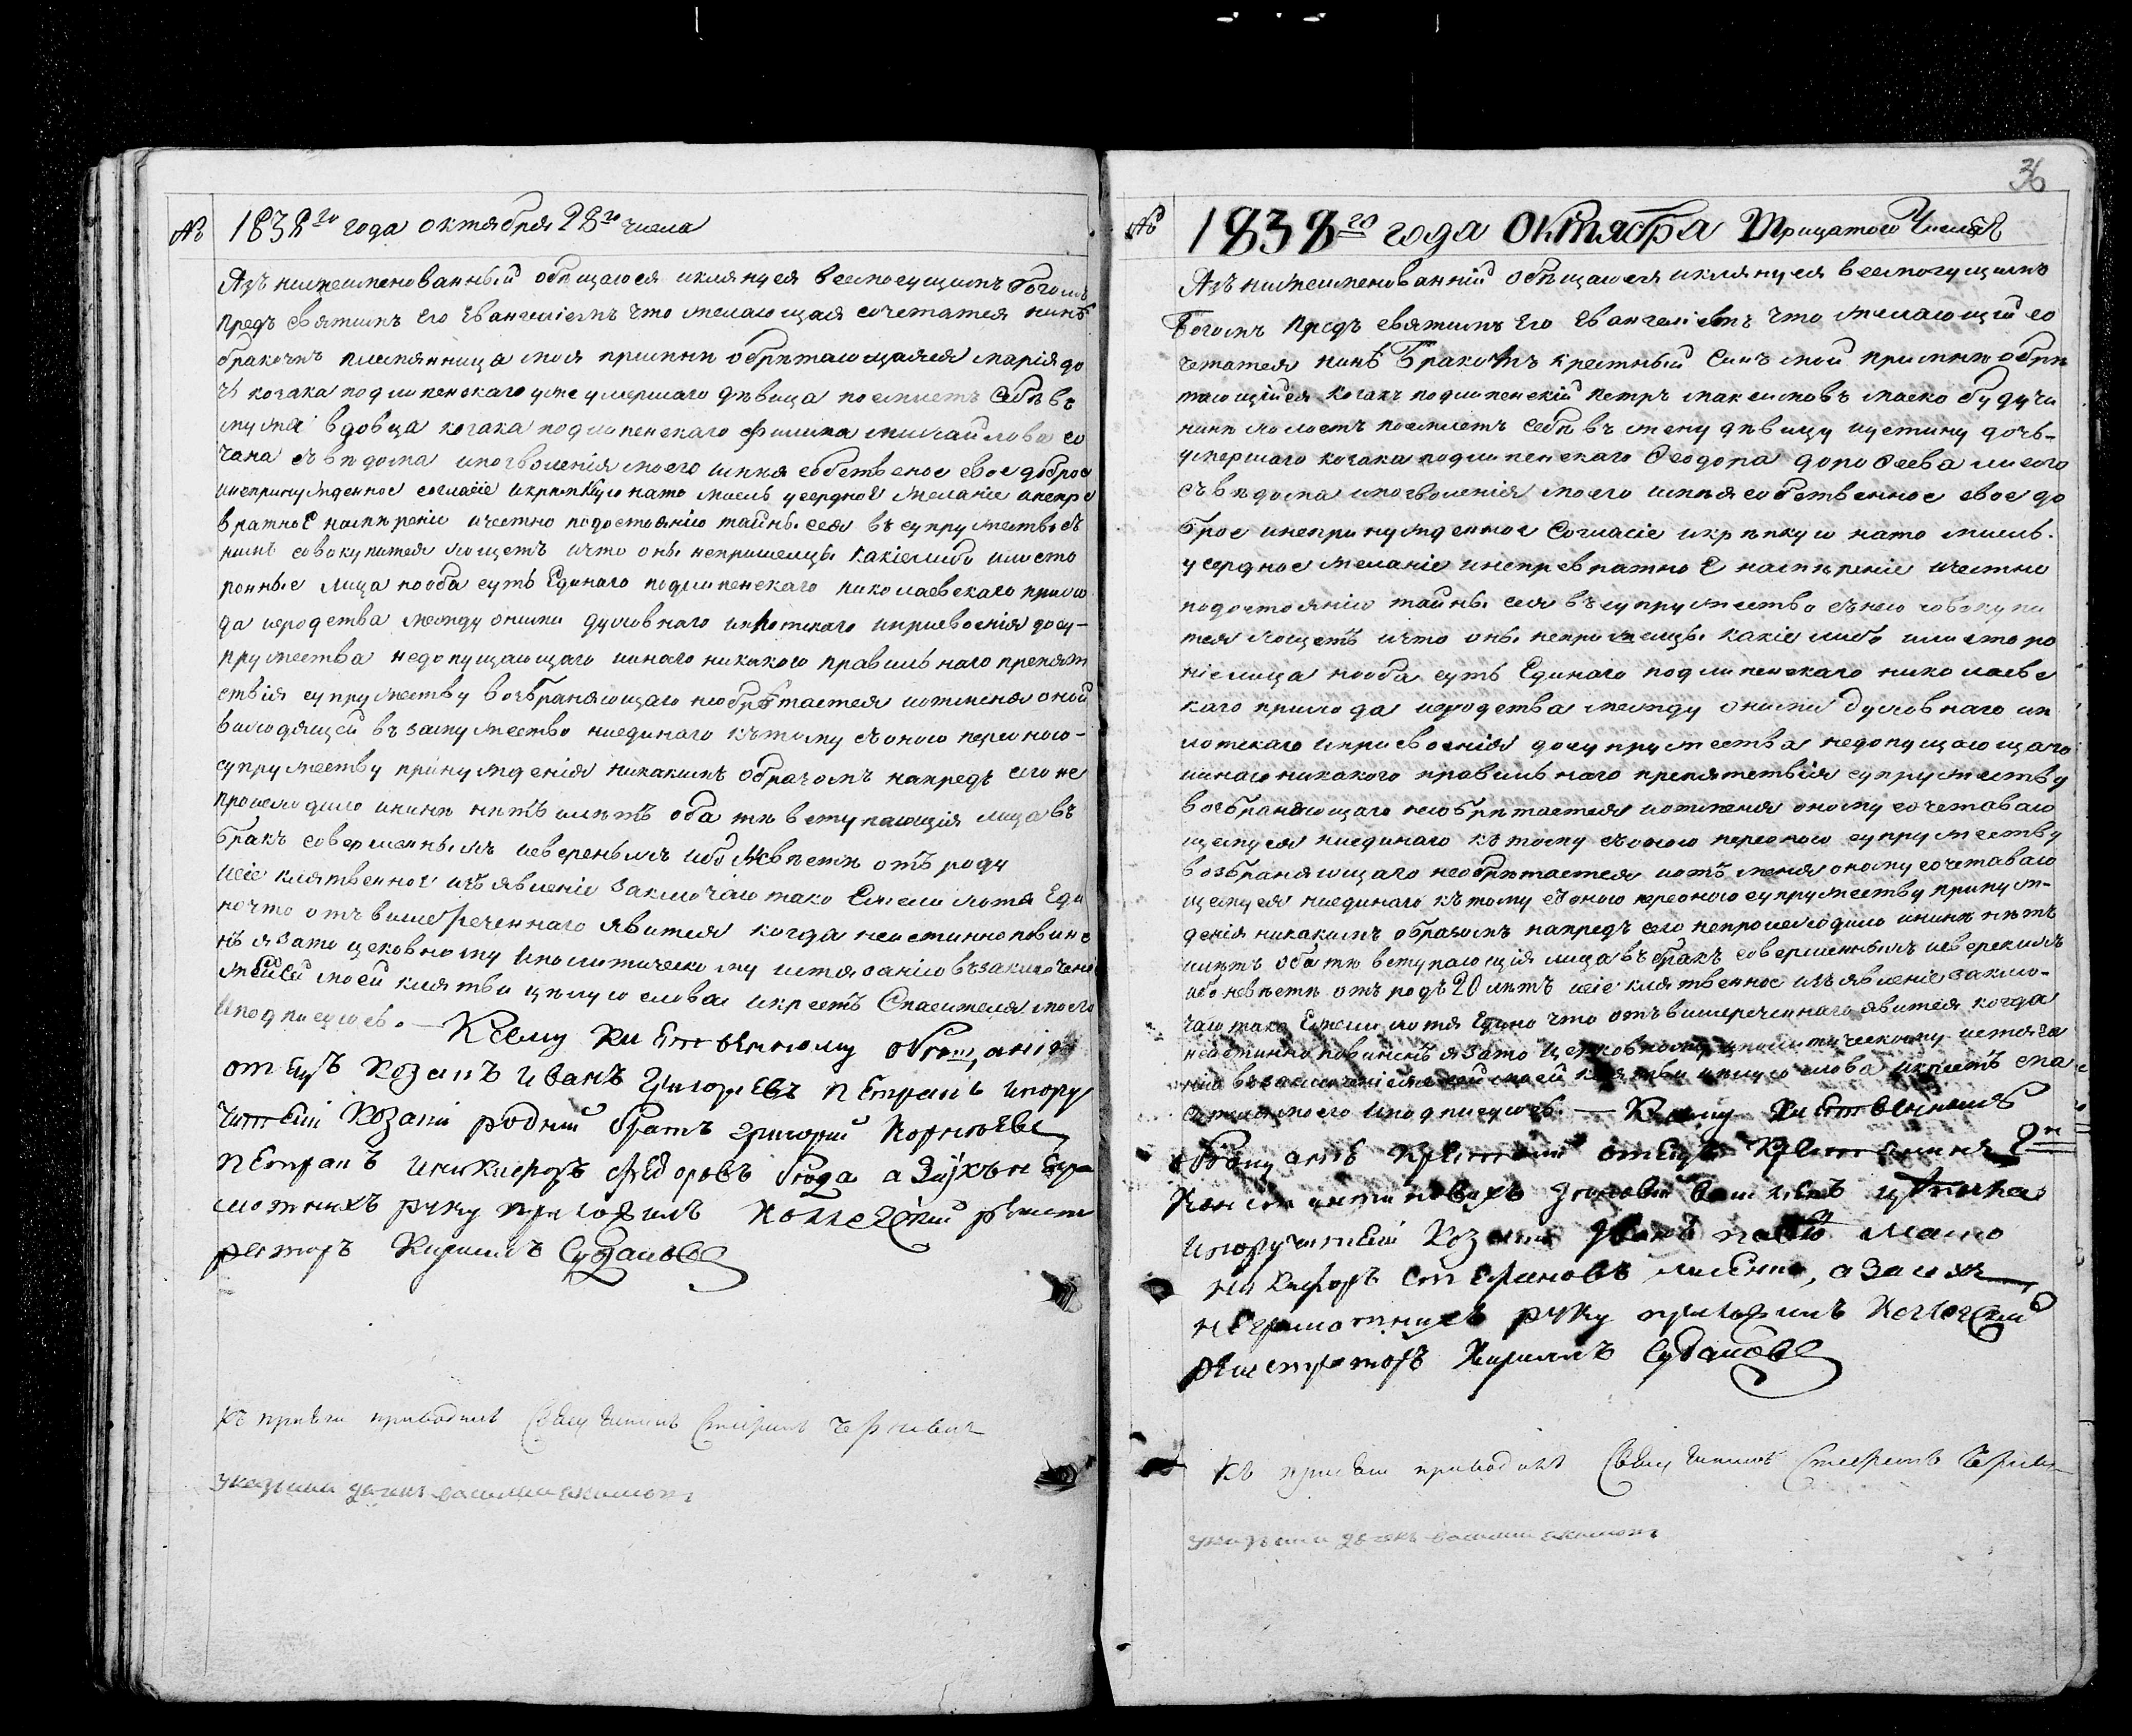 № 1838го года октября 28го числа
Азъ нижеименованный обещаюся и клянуся всемогущимъ Богомъ
предъ святымъ его Евангеліемъ что желающая сочетатся нинѣ
бракомъ племянница моя при мнѣ обрѣтающаяся Марія до
чь козака подлипенскаго уже умершаго дѣвица поемлетъ себѣ въ
мужа вдовца козака подлипенскаго Филипа Михайлова со
чана съ вѣдома и позволенія моего имѣя собственое свое доброе
и непринужденное согласіе и крѣпкую на то мысль усердное желаніе и непре
вратное намѣреніе и честно по достоянію тайны сея въ супружество съ
нимъ совокупится хощетъ и что оны непришелцы какіе либо или сто
ронные лица но оба суть Единаго подлипенскаго николаевскаго прихо
да и сродства между оними духовнаго и плотскаго и присвоенія до су-
пружества недопущающаго и инаго никакого правильнаго препят
ствія супружеству возбраняющаго необрѣтается и от меня оной
виходящей въ замужество ниединаго къ тому съ оною персоною
супружеству принужденія никакимъ образомъ напредъ сего не
происходило и нинѣ нѣтъ и лѣтъ оба тѣ вступающія лица въ
бракъ совершеннымъ и веренымъ ибо невѣсте отъ роду
и сіе клятвенное изъявленіе заключаю тако Ежели хотя Еди
но что отъ вишереченнаго явится когда неистинно повине
нъ я за то церковному и политическому истязанію въ заключеніе
же сей моей клятви цѣлую слова и крестъ Спасителя моего
и подписуюсь. — К сему клятвенному обещанію
отецъ козакъ Иванъ Григоріевъ Петраиъ и пору
чители козаки родний братъ Григорий Корнѣевъ
Петраиъ и никифоръ Федоровъ а за ихъ негра
мотнихъ руку приложилъ Колежский регист
раторъ Кирилъ Судаковъ
къ присяги приводилъ Священникъ Стефанъ Черневи
указний дьякъ василий екимовъ
36
№ 1838го года Октября Трицатого Числа
Азъ нижеименованній обѣщаюся и клянуся всемогущимъ
Богомъ Предъ святимъ Его Евангеліемъ что желающій со
четатся нинѣ Бракомъ крестный Синъ мой при мнѣ обрѣ
тающійся козакъ подлипенскій Петръ максимовъ маско будучи
нинѣ холостъ поемлетъ себѣ въ жену дѣвицу Иустину дочь-
умершаго козака подлипенскаго Феодора дорофеева лисого
съ вѣдома и позволенія моего имѣя собственное свое до
брое и непринужденное Согласіе и крѣпкую на то мисль.
усердное желаніе и непревратное намѣреніе и честно
по достоянію тайны сея въ супружество съ нею совокупи
тся хощетъ и что оны непришелцы какіе либо или сторо
ніе лица но оба суть Единаго подлипенскаго николаевс
каго прихода и сродства между оними Духовнаго и п
лотскаго и присвоенія до супружества недопущающаго
и инаго никакого правильнаго препятствія супружеству
возбраняющаго необрѣтается и от меня оному сочетаваю
щемуся ниединаго къ тому съ оною персоною супружеству
возбраняющаго необрѣтается и отъ меня оному сочетаваю
щемуся ниединаго къ тому съ оною персоною супружеству принуж-
денія никакимъ образомъ напредъ сего непроисходило и нинѣ нѣтъ
и лѣтъ оба тѣ вступающія лица въ бракъ совершеннымъ и веренимъ
ибо невѣсте отъ родъ 20 лѣтъ и сіе клятвенное изъявленіе заклю-
чаю тако Ежели хотя Едино что отъ вишереченнаго явится когда
неистинно повиненъ я за то церковному и политическому истяза
нію въ заключеніе же сей моей клятви цѣлую слова и крестъ спа
сителя моего и подписуюсь — К сему Клятвенному
обещанію крестний отецъ
и поручители Козаки Иванъ
никифоръ Стефановъ а за ихъ
неграмотнихъ руку приложилъ Колежский
регистраторъ Кирилъ Судаковъ
къ присяги приводилъ Священникъ Стефанъ Черневи
указний дьякъ василий екимовъ